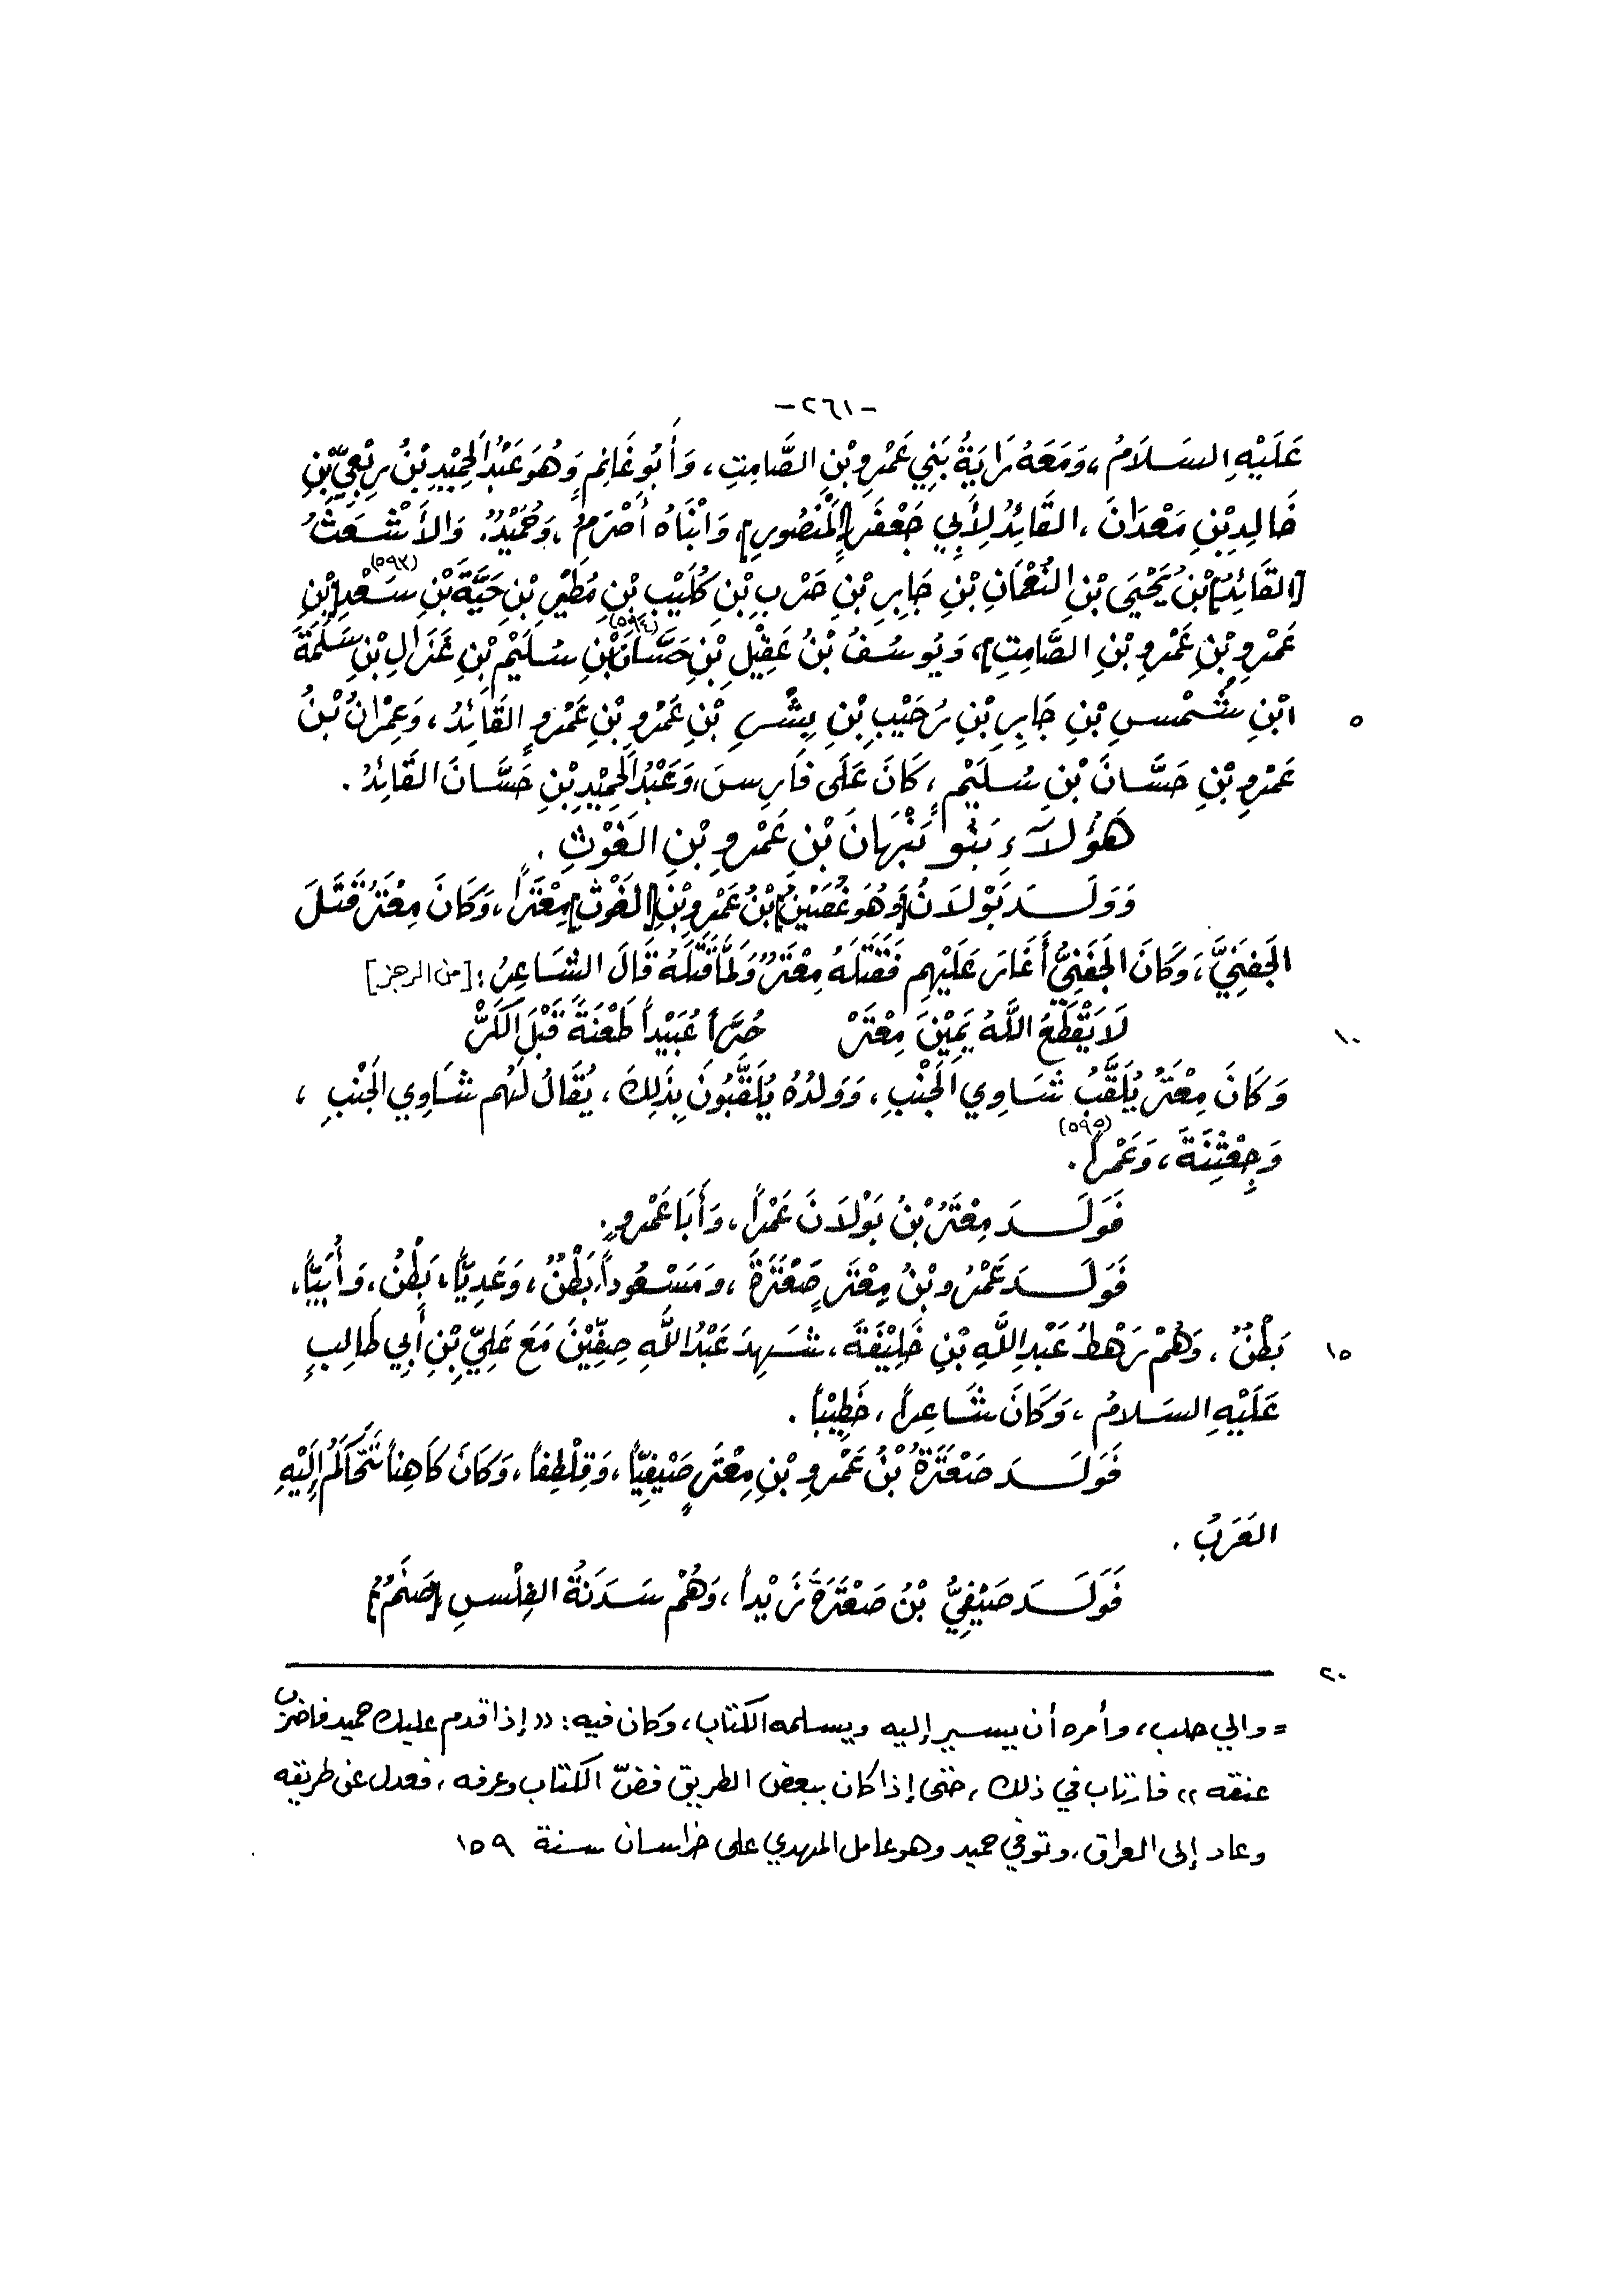 -٢٦١-
عَلَيْهِ السَلَامُ، وَمَعَهُ رَايَةُ بَنِي عَمْرِو بْنِ الصَّامِتِ، وَأَبُو غَانِمٍ وَهُوَ عَبْدُ الحَمِيْدِ بْنُ رِبْعِيِّ بْنِ
خَالِدِ بْنِ مَعْدَانَ، القَائِدُ لِأَبِي جَعْفَرٍ [المَنْصُورِ]، وَابْنَاهُ أَصْرَمُ، وَحُمَيْدٌ. وَالأَشْعَثُ
[القَائِدُ] بْنُ يَحْيَى بْنِ النُعْمَانِ بْنِ جَابِرِ بْنِ حَرْبِ بْنِ كُلَيْبِ بْنِ مُطَيْرِ بْنِ حَيَّةَ بْنِ سَعْدِ (٥٩٣) [بْنِ
عَمْرِو بْنِ عَمْرِو بْنِ الصَّامِتِ]، وَيُوسُفُ بْنُ عَقِيْلِ بْنِ حَسَّانَ (٥٩٤) بْنِ سُلَيْمِ بْنِ غَزَالِ بْنِ سَلَمَةَ
ابْنِ شُمْسِ بْنِ جَابِرِ بْنِ رُحَيْبِ بْنِ بِشْرِ بْنِ عَمْرِو بْنِ عَمْرٍو القَائِدُ، وَعِمْرَانُ بْنُ
٥
عَمْرِو بْنِ حَسَّانَ بْنِ سُلَيْمٍ، كَانَ عَلَى فَارِسَ، وَعَبْدُ الحَمِيْدِ بْنِ حَسَّانَ القَائِدُ.
هَؤُلَآءِ بَنُو نَبْهَانَ بْنِ عَمْرِو بْنِ الغَوْثِ.
وَوَلَـدَ بَوْلَانُ [وَهُوَ غُصَيْنُ] بْنُ عَمْرِو بْنِ [الغَوْثِ] مِعْتَرًا، وَكَانَ مِعْتَرُ قَتَلَ
الجَفْنِيَّ، وَكَانَ الجَفْنِيُّ أَغَارَ عَلَيْهِم فَقَتَلَهُ مِعْتَرٌ وَلَمَّا قَتَلَهُ قَالَ الشَاعِرُ: [من الرجز]
لَا يَقْطَعُ اللَّهُ يَمِيْنَ مِعْتَرْ حُرَّاً عُبَيْداً طَعْنَةً قَبْلَ الكَرّْ
١٠
وَكَانَ مِعْتَرُ يُلَقَّبُ شَاوِي الجَنْبِ، وَوَلَدُهُ يُلَقَّبُونَ بِذَلِكَ، يُقَالُ لَهُم شَاوِي الجَنْبِ،
وَجِعْثِنَةَ، وَعَمْراً (٥٩٥).
فَوَلَـدَ مِعْتَرُ بْنُ بَوْلَانَ عَمْراً، وَأَبَا عَمْرٍو.
فَوَلَـدَ عَمْرُو بْنُ مِعْتَرٍ صَعْتَرَةَ، وَمَسْعُوداً، بَطْنٌ، وَعَدِيَّاً، بَطْنٌ، وَأُبَيَّاً،
بَطْنٌ، وَهُمْ رَهْطُ عَبْدِ اللَّهِ بْنِ خَلِيْفَةَ، شَهِدَ عَبْدُ اللَّهِ صِفِّيْنَ مَعَ عَلِيِّ بْنِ أَبِي طَالِبٍ
١٥
عَلَيْهِ السَلَامُ، وَكَانَ شَاعِراً، خَطِيْباً.
فَوَلَـدَ صَعْتَرَةُ بْنُ عَمْرِو بْنِ مِعْتَرٍ صَيْفِيَّاً، وَقِلْطِفاً، وَكَانَ كَاهِناً تَتَحَاكَمُ إِلَيْهِ
العَرَبُ.
فَوَلَـدَ صَيْفِيُّ بْنُ صَعْتَرَةَ زَيْداً، وَهُمْ سَدَنَةُ الفِلْسِ [صَنَمٌ]
٢٠
= والي حلب، وأمره أن يسير إليه ويسلمه الكتاب، وكان فيه: «إذا قدم عليك حميد فاضرب
عنقه» فارتاب في ذلك، حتى إذا كان ببعض الطريق فضّ الكتاب وعرفه، فعدل عن طريقه
وعاد إلى العراق، وتوفي حميد وهو عامل المهدي على خراسان سنة ١٥٩